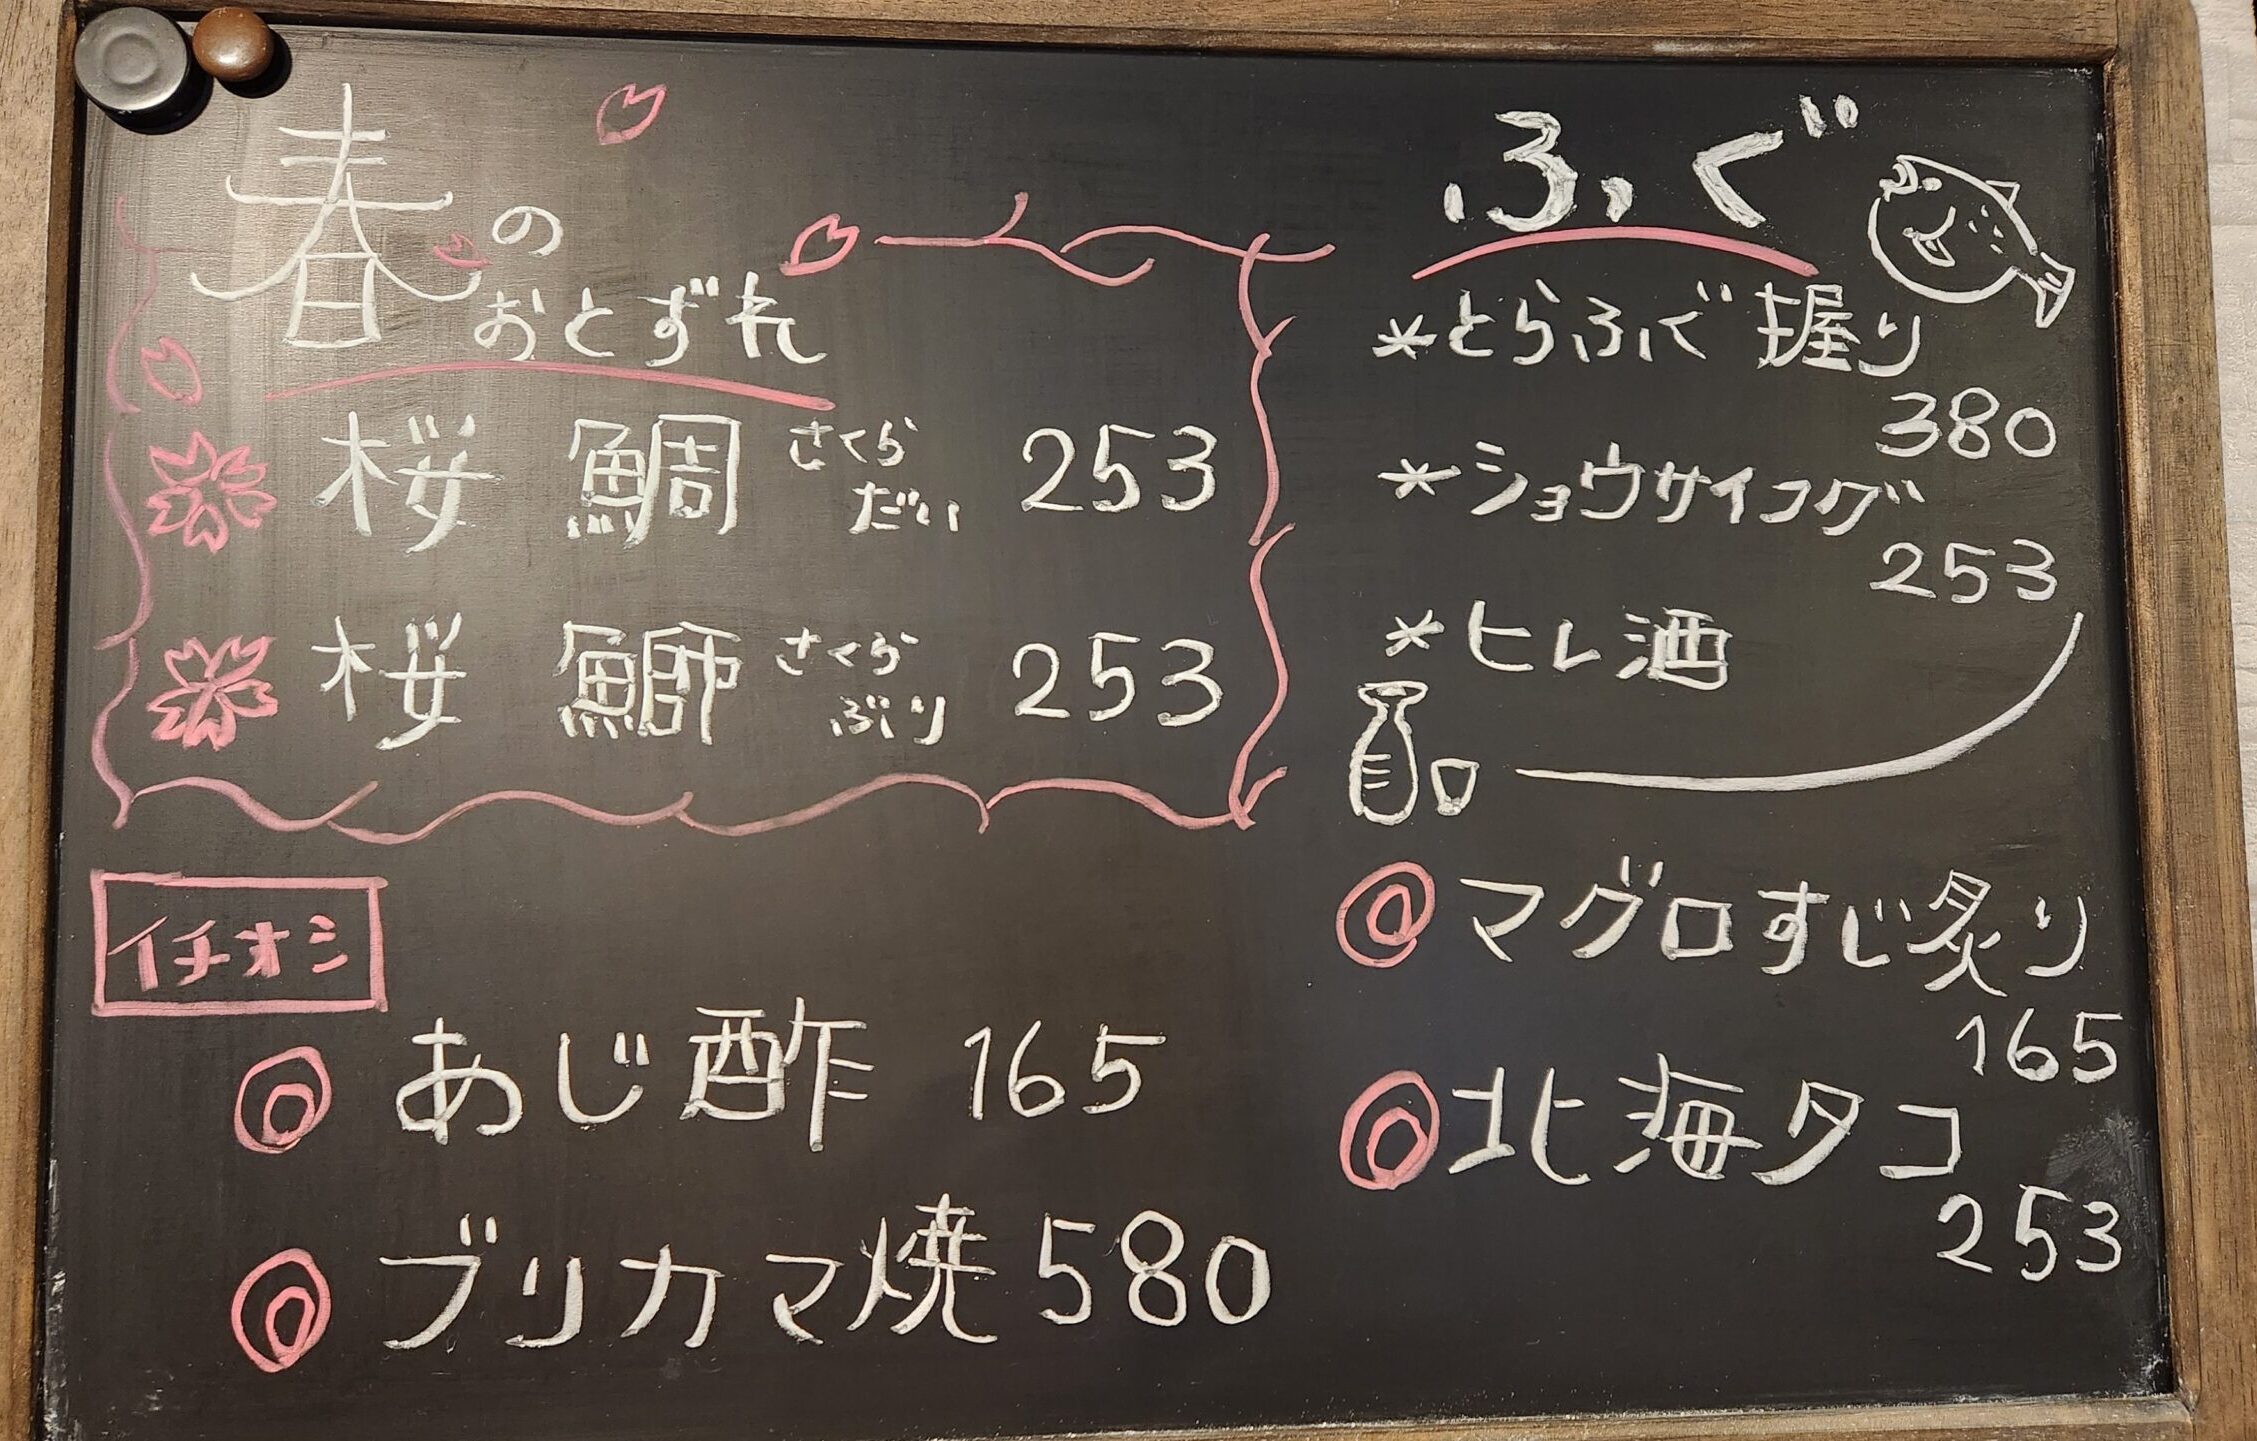 春の
おとずれ
桜 鯛 さくら
だい 253
桜 鰤 さくら
ぶり 253
イチオシ
あじ酢 165
ブリカマ焼 580
ふぐ
*とらふぐ 握り
380
*ショウサイフグ
253
*ヒレ酒
マグロすじ炙り
165
北海タコ
253